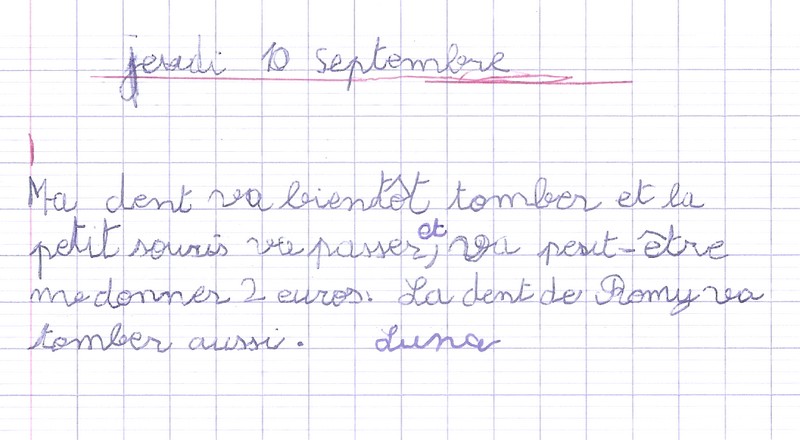 jeudi 10 septembre
Ma dent va bientôt tomber et la
petit souris va passer, et va peut-être
me donner 2 euros. La dent de Romy va
tomber aussi. Luna